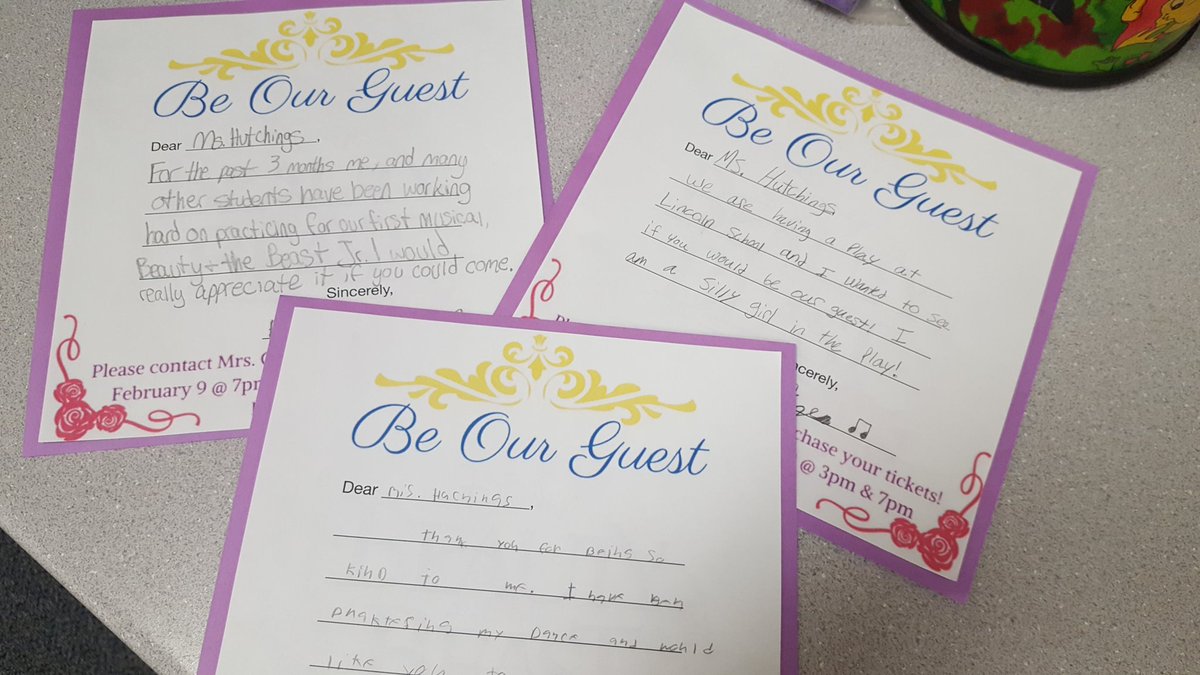 Be Our Guest
Dear Ms. Hutchings,
For the past 3 months me, and many
other students have been working
hard on practicing for our first musical,
Beauty + the Beast Jr. I would
really appreciate it if you could come.
Sincerely,
Please contact Mrs.
February 9 @ 7p
Be Our Guest
Dear Ms. Hutchings
we are having a Play at
Lincoln School and I wanted to see
if you would be our guest! I
am a Silly girl in the Play!
cerely,
chase your tickets!
@ 3pm & 7pm
Be Our Guest
Dear Mis. Hachings,
thank yoh for Being so
kind to me. I have ben
prakтesing my Dance and wohld
like yoh to